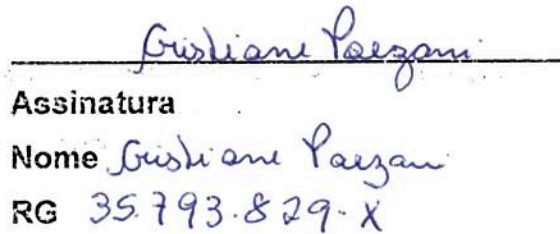 Cristiane Paezani
Assinatura
Nome Cristiane Paezani
RG 35.793.829-X